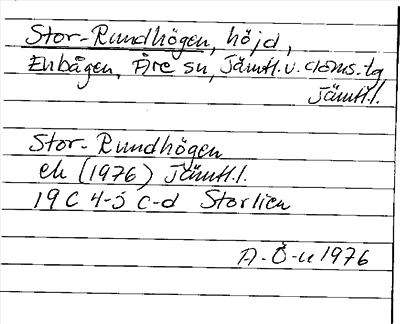 Stor-Rundhögen, höjd,
Enbågen, Åre sn, Jämtl.v. doms.lg
Jämtl.l.
Stor-Rundhögen
ek (1976) Jämtl.l.
19 C 4-5 c-d Storlien
A-Ö-u 1976